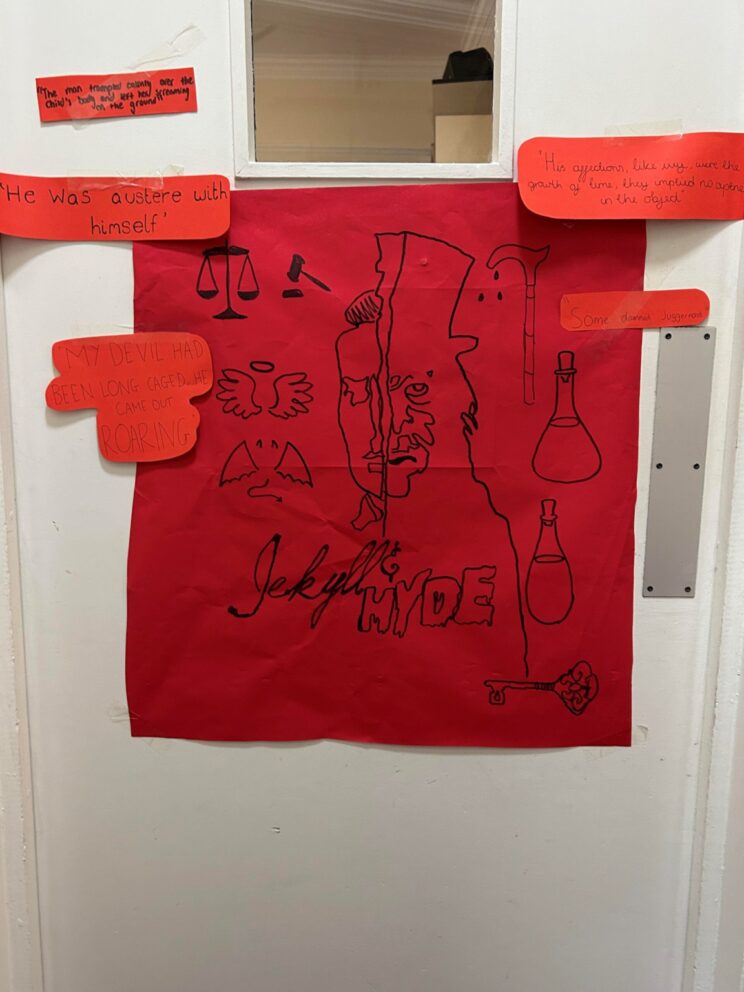 "The man trampled calmly over the
child's body and left her screaming
on the ground"
'He was austere with
himself'
"His affections, like ivy, were the
growth of time, they implied no aptness
in the object"
"Some damned Juggernaut
'MY DEVIL HAD
BEEN LONG CAGED...HE
CAME OUT
ROARING'
Jekyll &
HYDE